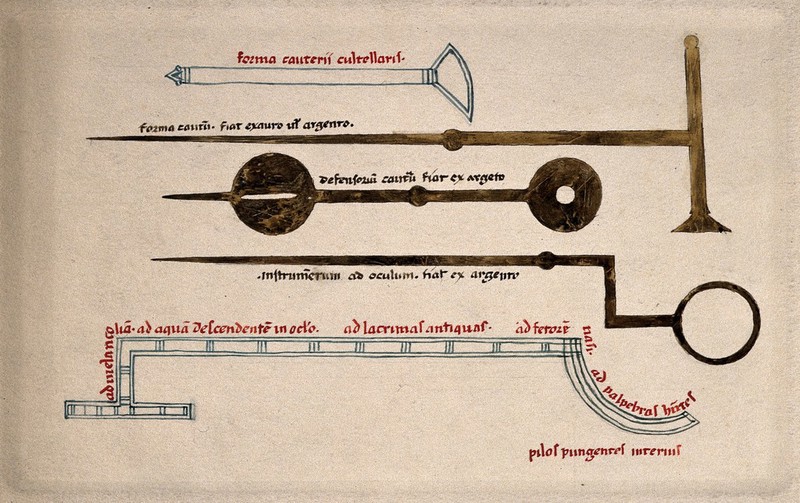 forma cauterii cultellaris·
forma cautu᷑· fiat exauro ul᷑ argento·
Defensoriu᷑ cautu᷑ fiat ex argeto
·Instrum̅entum ad oculum· fiat ex argento
ad melancoliā· ad aquā Descendentē in oclo̅· ad lacrimas antiquas· ad fetorē nasi· ad palpebras hn̅tes
pilos pungentes interius